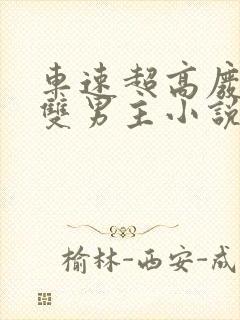 車速超高
雙男主小說
榆林-西安-成